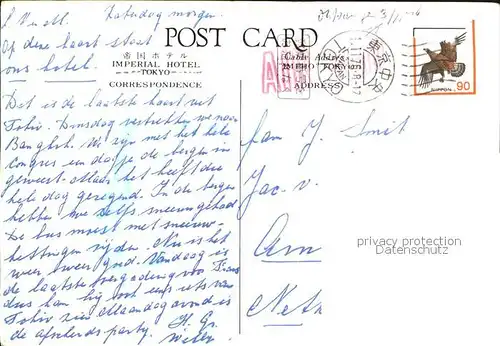 Zaterdag morgen.
Op deze kaart staat
ons hotel.
POST CARD
帝国ホテル
IMPERIAL HOTEL
TOKYO
CORRESPONDENCE
Cable Address
IMPHO TOKYO
ADDRESS)
東京中央
NIPPON 90
Dit is de laatste kaart uit
Tokio. Dinsdag vertrekken we naar
Bangkok. We zijn met het hele
congres een dagje de bergen in
geweest. Maar het heeft die
hele dag geregend. In de bergen
hebben we zelfs sneeuw gehad
De bus moest met sneeuw-
kettingen rijden. Nu is het
weer weer goed. Vandaag is
de laatste vergadering voor Frans
dus kan hij ook eens iets van
Tokio zien. Maandag avond is
de afscheids party.
Fam J. Smit
Jac. v.
Am
Neth
privacy protection
Datenschutz